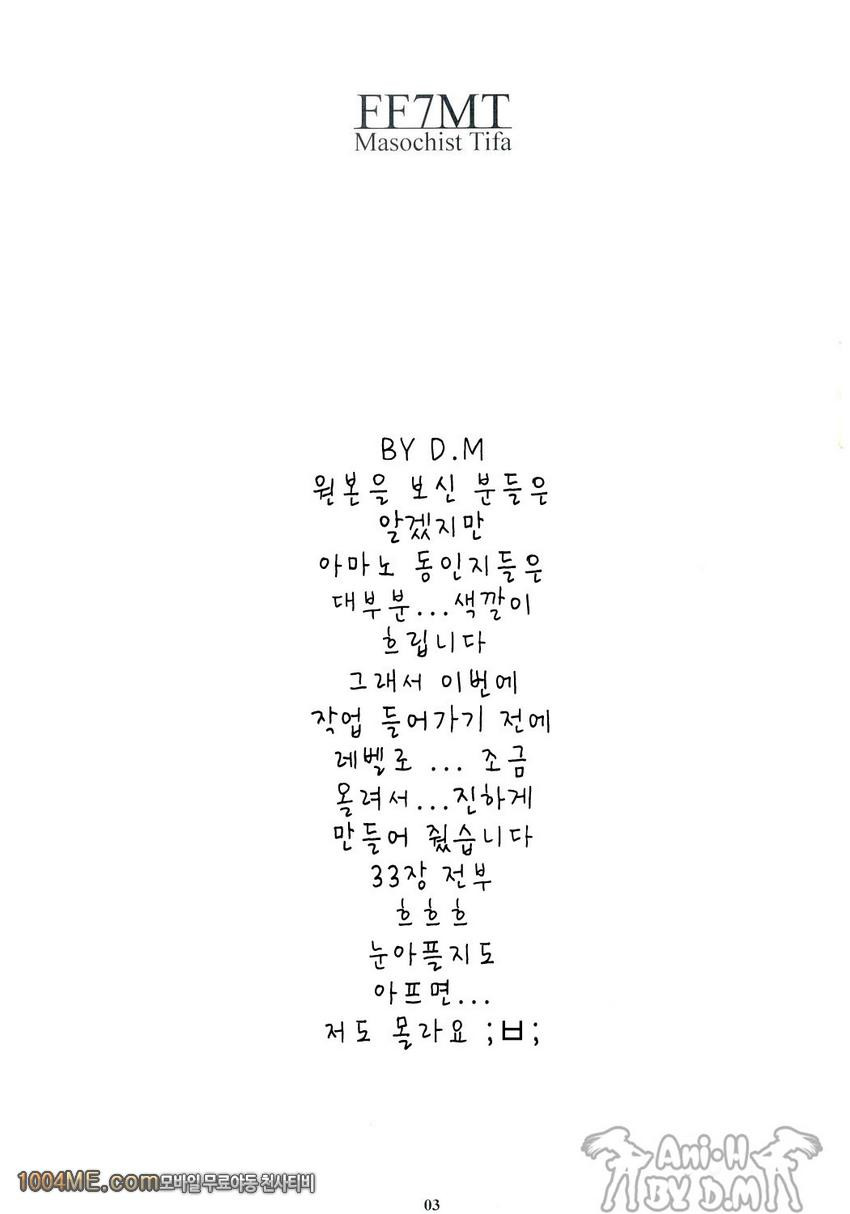 FF7MT
Masochist Tifa
BY D.M
원본을 보신 분들은
알겠지만
아마노 동인지들은
대부분...색깔이
흐립니다
그래서 이번에
작업 들어가기 전에
레벨로 ... 조금
올려서...진하게
만들어 줬습니다
33장 전부
흐흐흐
눈아플지도
아프면...
저도 몰라요 ;ㅂ;
Ani·H
BY D.M
1004ME.com모바일무료야동천사티비
03